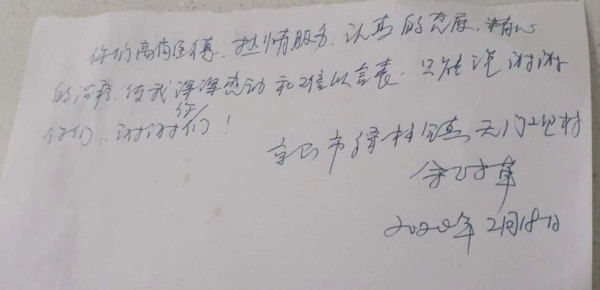 你们高尚医德,热情服务,认真的态度,精心
的治疗,使我深深感动和难以言表,只能说谢谢
你们,谢谢你们!
市 镇天门 村
余
2020年2月18日